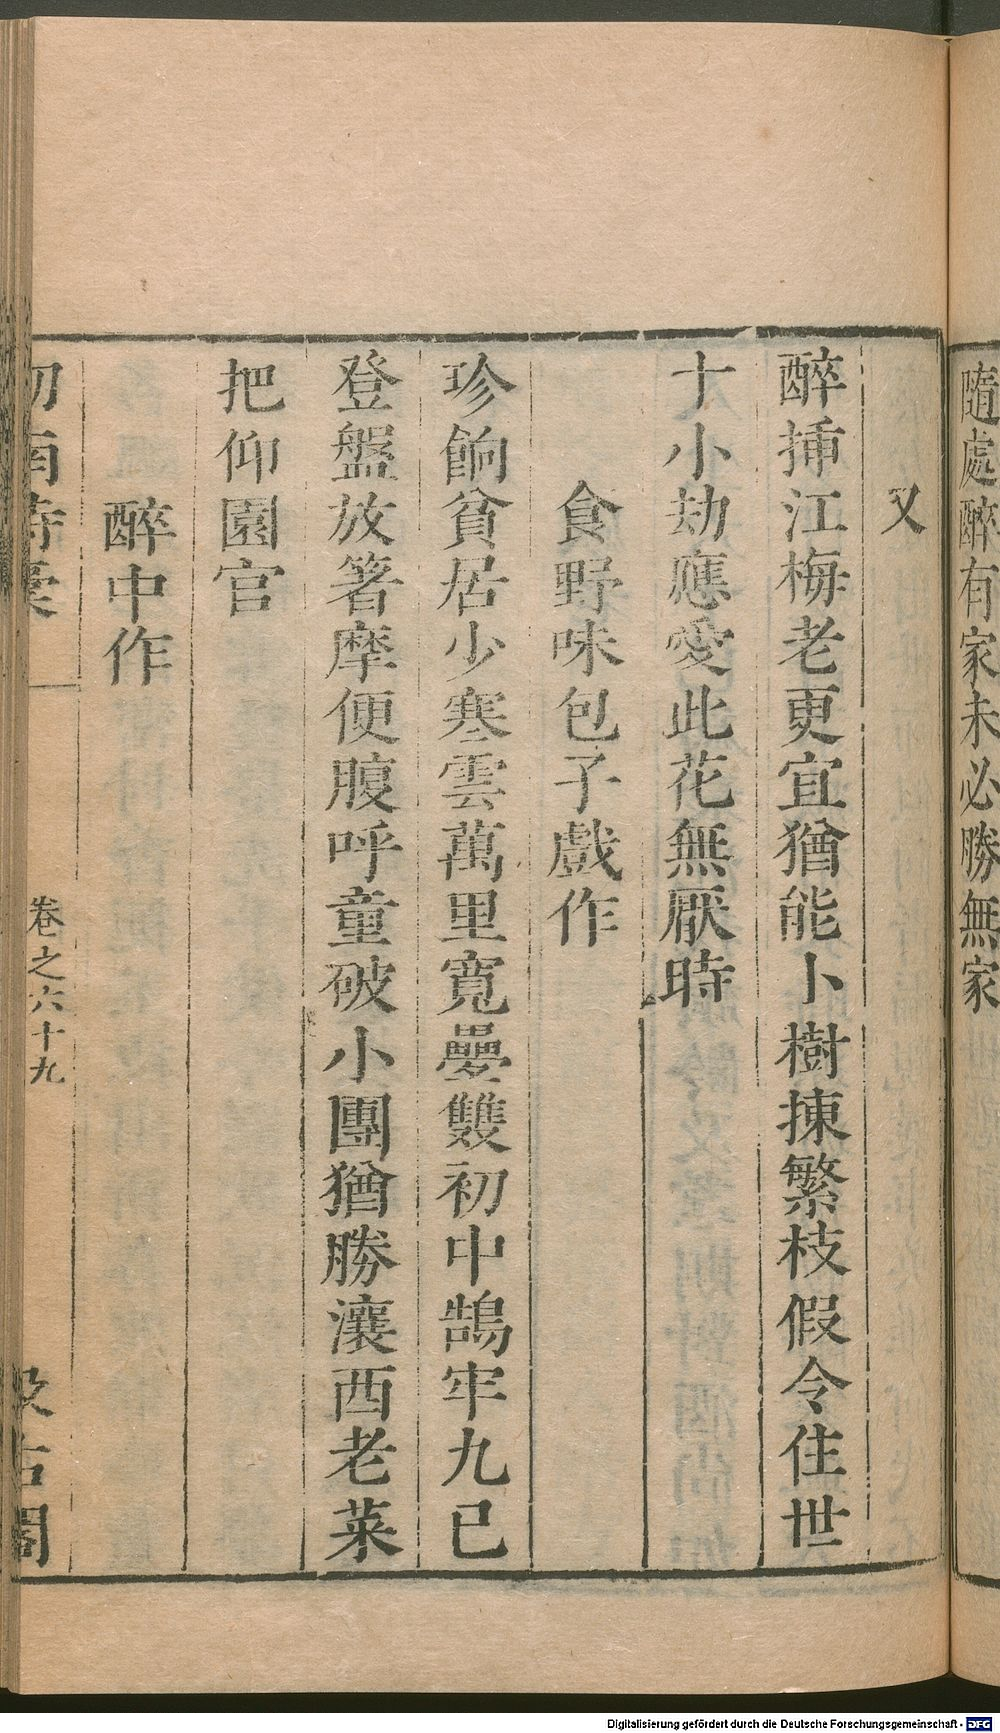 隨處醉有家未必勝無家
又
醉揷江梅老更宜猶能卜樹揀繁枝假令住世
十小劫應愛此花無厭時
食野味包子戲作
珍餉貧居少寒雲萬里寬疊雙初中鵠牢九已
登盤放箸摩便腹呼童破小團猶勝瀼西老菜
把仰園官
醉中作
劒南詩稾
卷之六十九
汲古閣
Digitalisierung gefördert durch die Deutsche Forschungsgemeinschaft - DFG